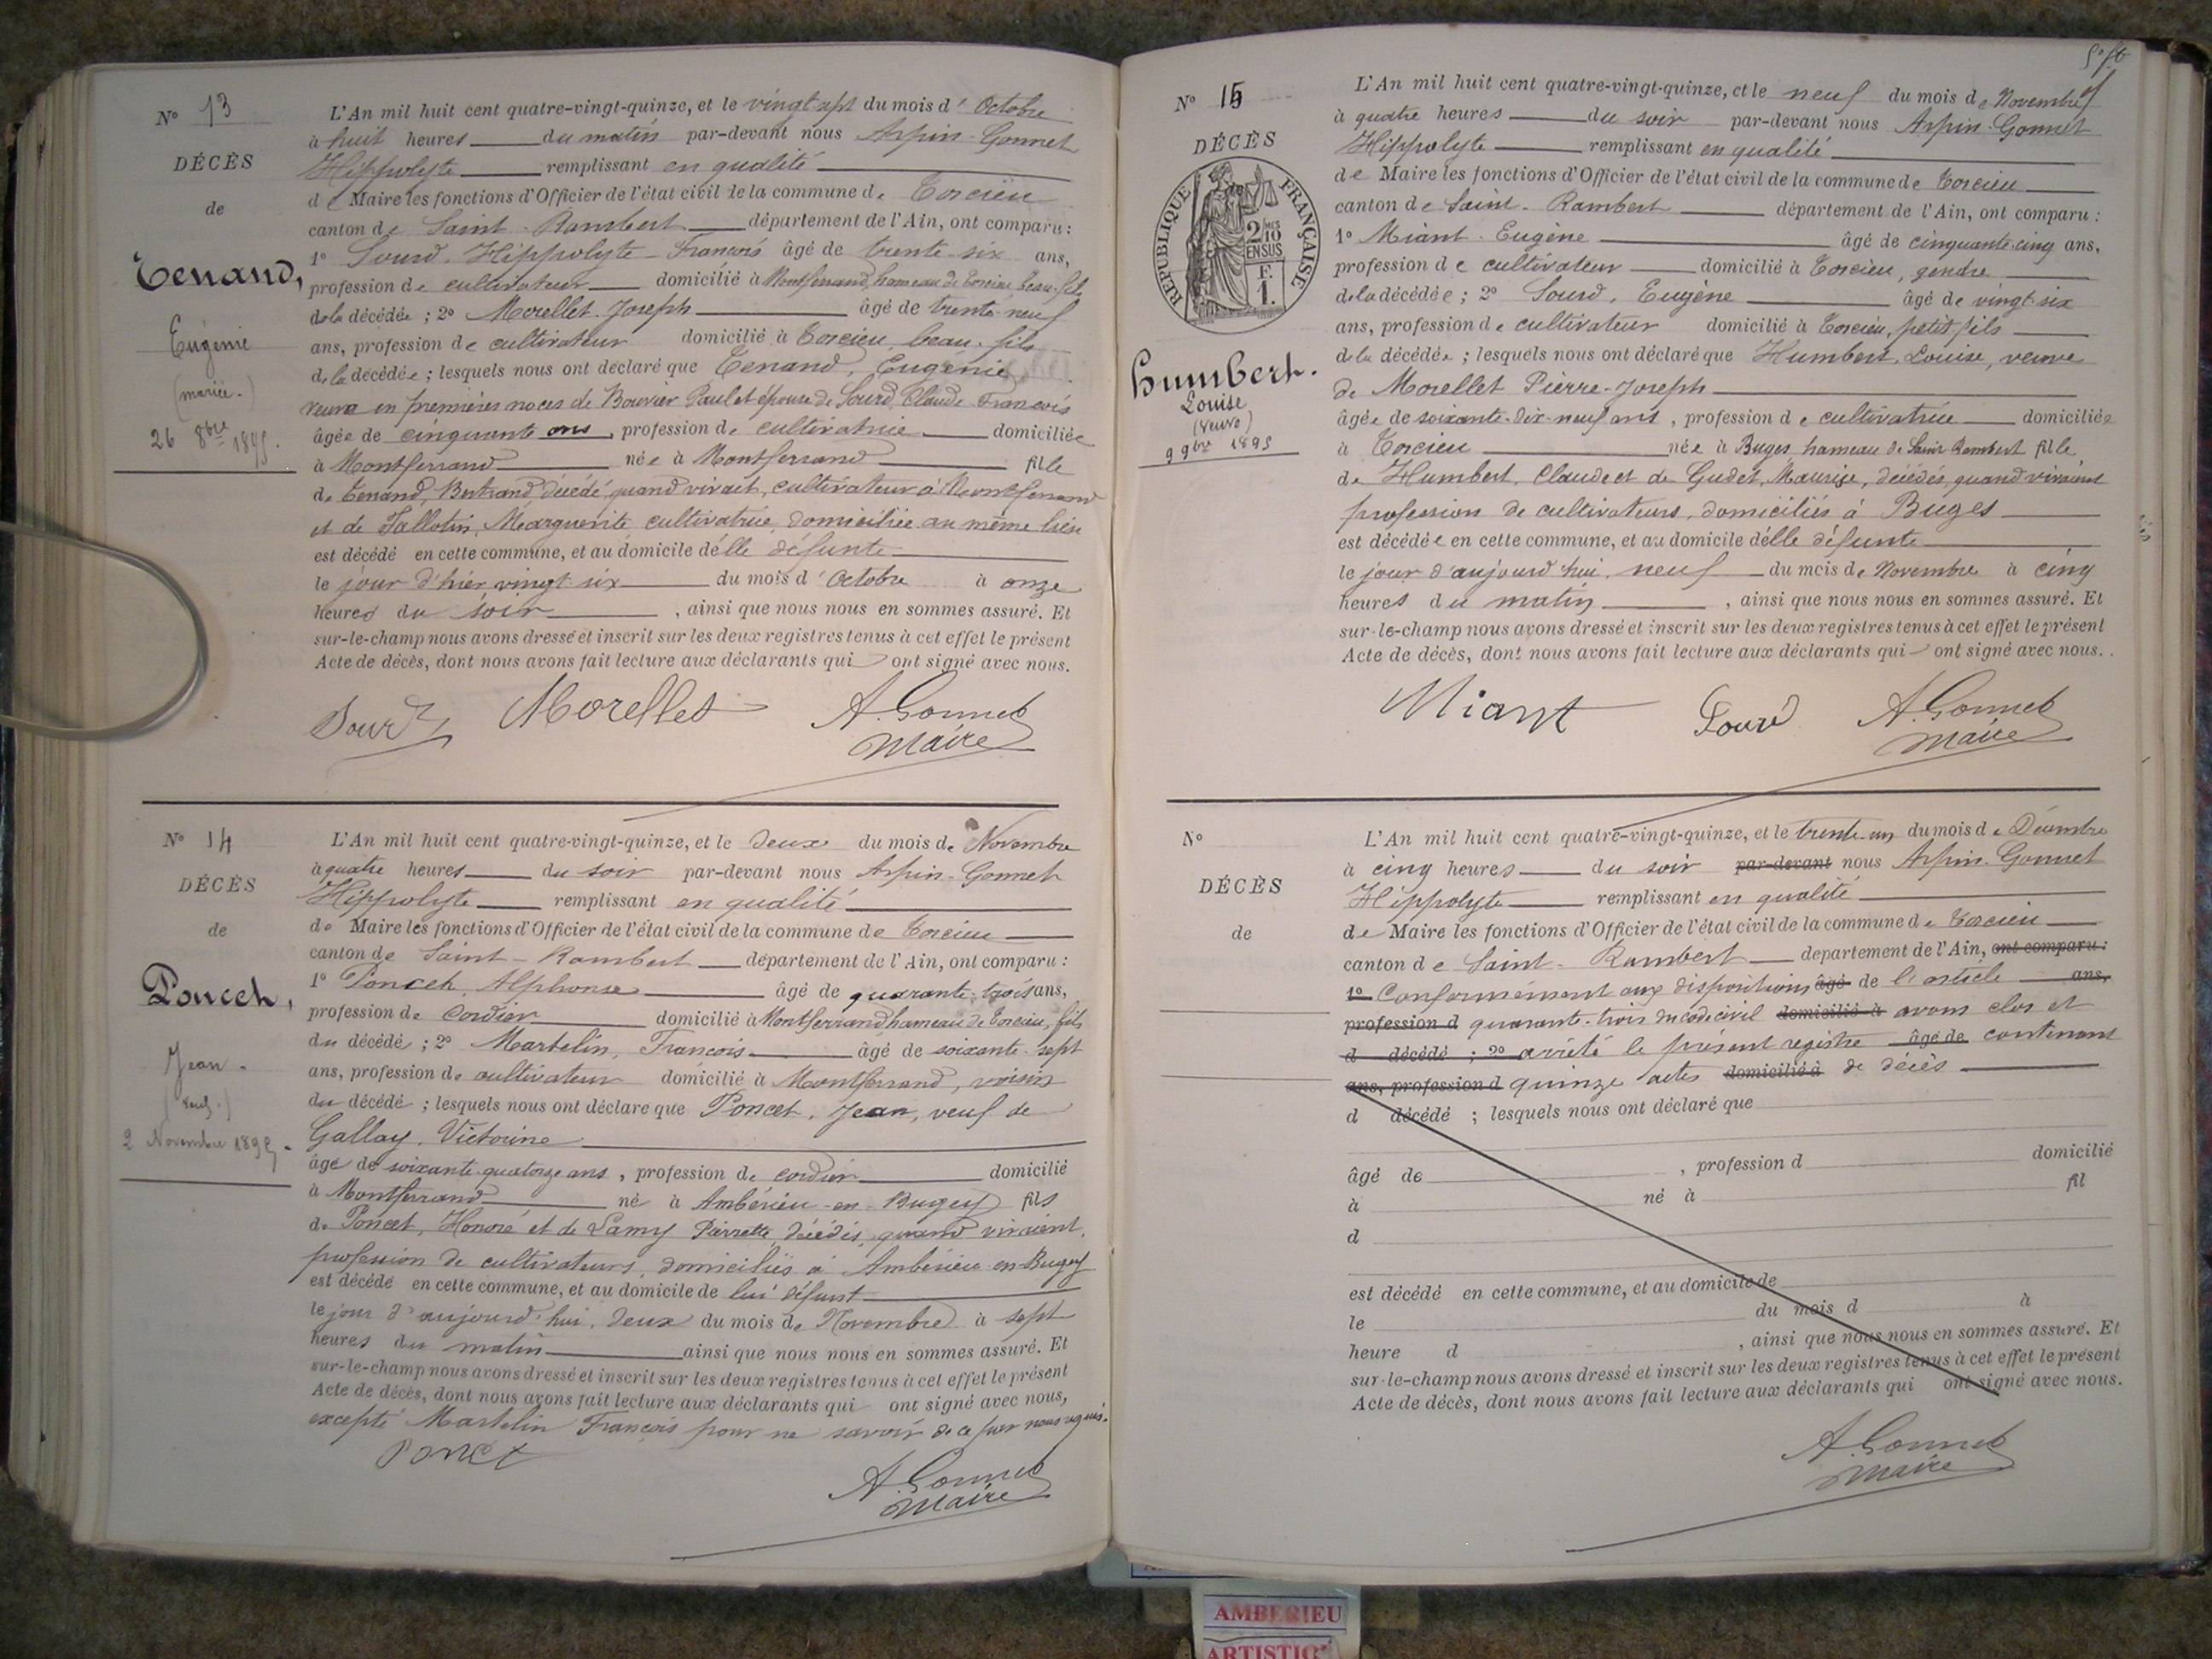 N° 13
DÉCÈS
de
Tenand,
Eugénie
(mariée.)
26 8bre 1895.
L'An mil huit cent quatre-vingt-quinze, et le vingt-sept du mois d' Octobre
à huit heures du matin par-devant nous Arpin-Gonnet
Hippolyte remplissant en qualité
de Maire les fonctions d'Officier de l'état civil de la commune de Torcieu
canton de Saint-Rambert département de l'Ain, ont comparu :
1° Sourd, Hippolyte-François âgé de trente-six ans,
profession de cultivateur domicilié à Montferrand, hameau de Torcieu, beau-fils
de la décédée ; 2° Morellet Joseph âgé de trente-neuf
ans, profession de cultivateur domicilié à Torcieu, beau-fils
de la décédée ; lesquels nous ont déclaré que Tenand, Eugénie,
veuve en premières noces de Bouvier Paul et épouse de Sourd, Claude François
âgée de cinquante ans, profession de cultivatrice domiciliée
à Montferrand née à Montferrand fille
de Tenand, Bertrand, décédé, quand vivait, cultivateur à Montferrand
et de Tallotin, Marguerite cultivatrice, domiciliée au même lieu
est décédé en cette commune, et au domicile d'elle défunte
le jour d'hier vingt-six du mois d' Octobre à onze
heures du soir, ainsi que nous nous en sommes assuré. Et
sur-le-champ nous avons dressé et inscrit sur les deux registres tenus à cet effet le présent
Acte de décès, dont nous avons fait lecture aux déclarants qui ont signé avec nous.
Sourd Morellet A. Gonnet
Maire
N° 14
DÉCÈS
de
Poncet,
Jean.
(veuf.)
2 Novembre 1895.
L'An mil huit cent quatre-vingt-quinze, et le deux du mois de Novembre
à quatre heures du soir par-devant nous Arpin-Gonnet
Hippolyte remplissant en qualité
de Maire les fonctions d'Officier de l'état civil de la commune de Torcieu
canton de Saint-Rambert département de l'Ain, ont comparu :
1° Poncet, Alphonse âgé de quarante-trois ans,
profession de Cordier domicilié à Montferrand hameau de Torcieu, fils
du décédé ; 2° Martelin, François âgé de soixante-sept
ans, profession de cultivateur domicilié à Montferrand, voisin
du décédé ; lesquels nous ont déclaré que Poncet, Jean, veuf de
Gallay, Victorine
âgé de soixante-quatorze ans, profession de cordier domicilié
à Montferrand né à Ambérieu-en-Bugey fils
de Poncet, Honoré et de Lamy Pierrette, décédés, quand vivaient,
profession de cultivateurs, domiciliés à Ambérieu-en-Bugey
est décédé en cette commune, et au domicile de lui défunt
le jour d'aujourd'hui, deux du mois de Novembre à sept
heures du matin ainsi que nous nous en sommes assuré. Et
sur-le-champ nous avons dressé et inscrit sur les deux registres tenus à cet effet le présent
Acte de décès, dont nous avons fait lecture aux déclarants qui ont signé avec nous,
excepté Martelin François pour ne savoir de ce par nous requis.
Poncet
A. Gonnet
Maire
N° 15
DÉCÈS
RÉPUBLIQUE FRANÇAISE
2/10 EN SUS
F. 1.
Humbert.
Louise
(Veuve)
9 9bre 1895
L'An mil huit cent quatre-vingt-quinze, et le neuf du mois de Novembre
à quatre heures du soir par-devant nous Arpin-Gonnet
Hippolyte remplissant en qualité
de Maire les fonctions d'Officier de l'état civil de la commune de Torcieu
canton de Saint-Rambert département de l'Ain, ont comparu :
1° Miant Eugène âgé de cinquante-cinq ans,
profession de cultivateur domicilié à Torcieu, gendre
de la décédée ; 2° Sourd, Eugène âgé de vingt-six
ans, profession de cultivateur domicilié à Torcieu, petit-fils
de la décédée ; lesquels nous ont déclaré que Humbert, Louise, veuve
de Morellet Pierre-Joseph
âgée de soixante-dix-neuf ans, profession de cultivatrice domiciliée
à Torcieu née à Buges hameau de Saint Rambert fille
de Humbert, Claude et de Gudet, Maurise, décédés, quand vivaient
profession de cultivateurs, domiciliés à Buges
est décédée en cette commune, et au domicile d'elle défunte
le jour d'aujourd'hui, neuf du mois de Novembre à cinq
heures du matin, ainsi que nous nous en sommes assuré. Et
sur-le-champ nous avons dressé et inscrit sur les deux registres tenus à cet effet le présent
Acte de décès, dont nous avons fait lecture aux déclarants qui ont signé avec nous.
Miant Sourd A. Gonnet
Maire
N°
DÉCÈS
de
L'An mil huit cent quatre-vingt-quinze, et le trente-un du mois de Décembre
à cinq heures du soir par-devant nous Arpin-Gonnet
Hippolyte remplissant en qualité
de Maire les fonctions d'Officier de l'état civil de la commune de Torcieu
canton de Saint-Rambert département de l'Ain, ont comparu :
1° Conformément aux dispositions âgé de l'article ans,
profession d quarante-trois du code civil domicilié à avons clos et
d décédé ; 2° arrêté le présent registre âgé de contenant
ans, profession d quinze actes domicilié à de décès
d décédé ; lesquels nous ont déclaré que
âgé de , profession d domicilié
à né à fil
d
est décédé en cette commune, et au domicile de
le du mois d à
heure d , ainsi que nous nous en sommes assuré. Et
sur-le-champ nous avons dressé et inscrit sur les deux registres tenus à cet effet le présent
Acte de décès, dont nous avons fait lecture aux déclarants qui ont signé avec nous.
A. Gonnet
Maire
AMBERIEU
ARTISTIQ